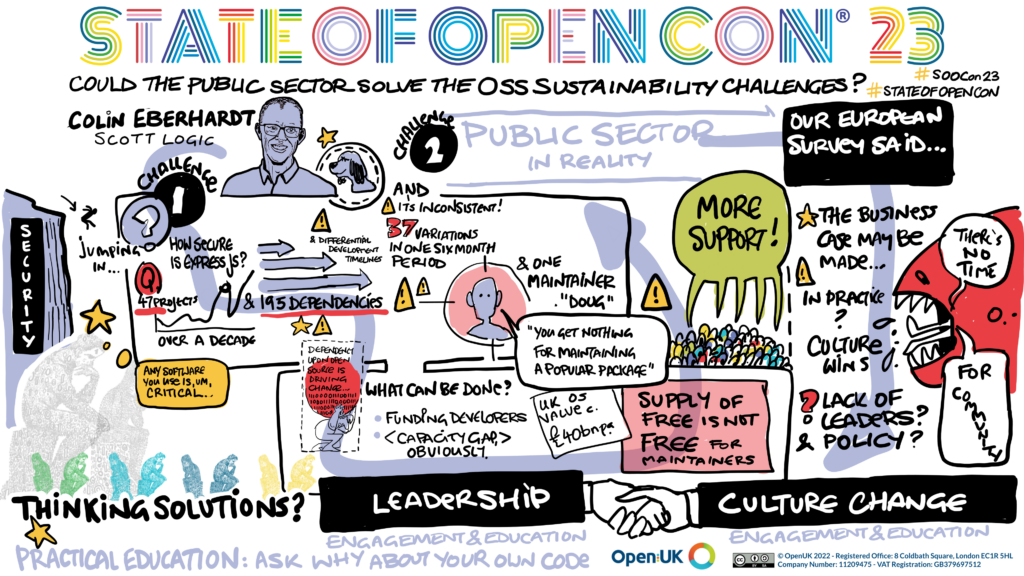 STATE OF OPEN CON® 23
COULD THE PUBLIC SECTOR SOLVE THE OSS SUSTAINABILITY CHALLENGES?
#SOOCON23
#STATEOFOPENCON
COLIN EBERHARDT
SCOTT LOGIC
CHALLENGE
1
?
SECURITY
JUMPING
IN...
HOW SECURE
IS EXPRESS JS?
Q.
47 PROJECTS
& 195 DEPENDENCIES
OVER A DECADE
& DIFFERENTIAL
DEVELOPMENT
TIMELINES
ANY SOFTWARE
YOU USE IS, UM,
CRITICAL...
CHALLENGE
2
PUBLIC SECTOR
IN REALITY
AND
ITS INCONSISTENT!
37 VARIATIONS
IN ONE SIX MONTH
PERIOD
& ONE
MAINTAINER
."DOUG"
"YOU GET NOTHING
FOR MAINTAINING
A POPULAR PACKAGE"
DEPENDENCY
UPON OPEN
SOURCE IS
DRIVING
CHANGE...
WHAT CAN BE DONE?
• FUNDING DEVELOPERS
• <CAPACITY GAP,>
OBVIOUSLY.
UK OS
VALUE C.
£40bnpa
SUPPLY OF
FREE IS NOT
FREE FOR
MAINTAINERS
MORE
SUPPORT!
OUR EUROPEAN
SURVEY SAID...
THE BUSINESS
CASE MAY BE
MADE...
IN PRACTICE
?
CULTURE
WINS
? LACK OF
LEADERS?
& POLICY?
THERE'S
NO TIME
FOR
COMMUNITY
THINKING SOLUTIONS?
LEADERSHIP
CULTURE CHANGE
ENGAGEMENT & EDUCATION
ENGAGEMENT & EDUCATION
PRACTICAL EDUCATION: ASK WHY ABOUT YOUR OWN CODE
OpenUK
cc
BY SA
© OpenUK 2022 - Registered Office: 8 Coldbath Square, London EC1R 5HL
Company Number: 11209475 - VAT Registration: GB379697512